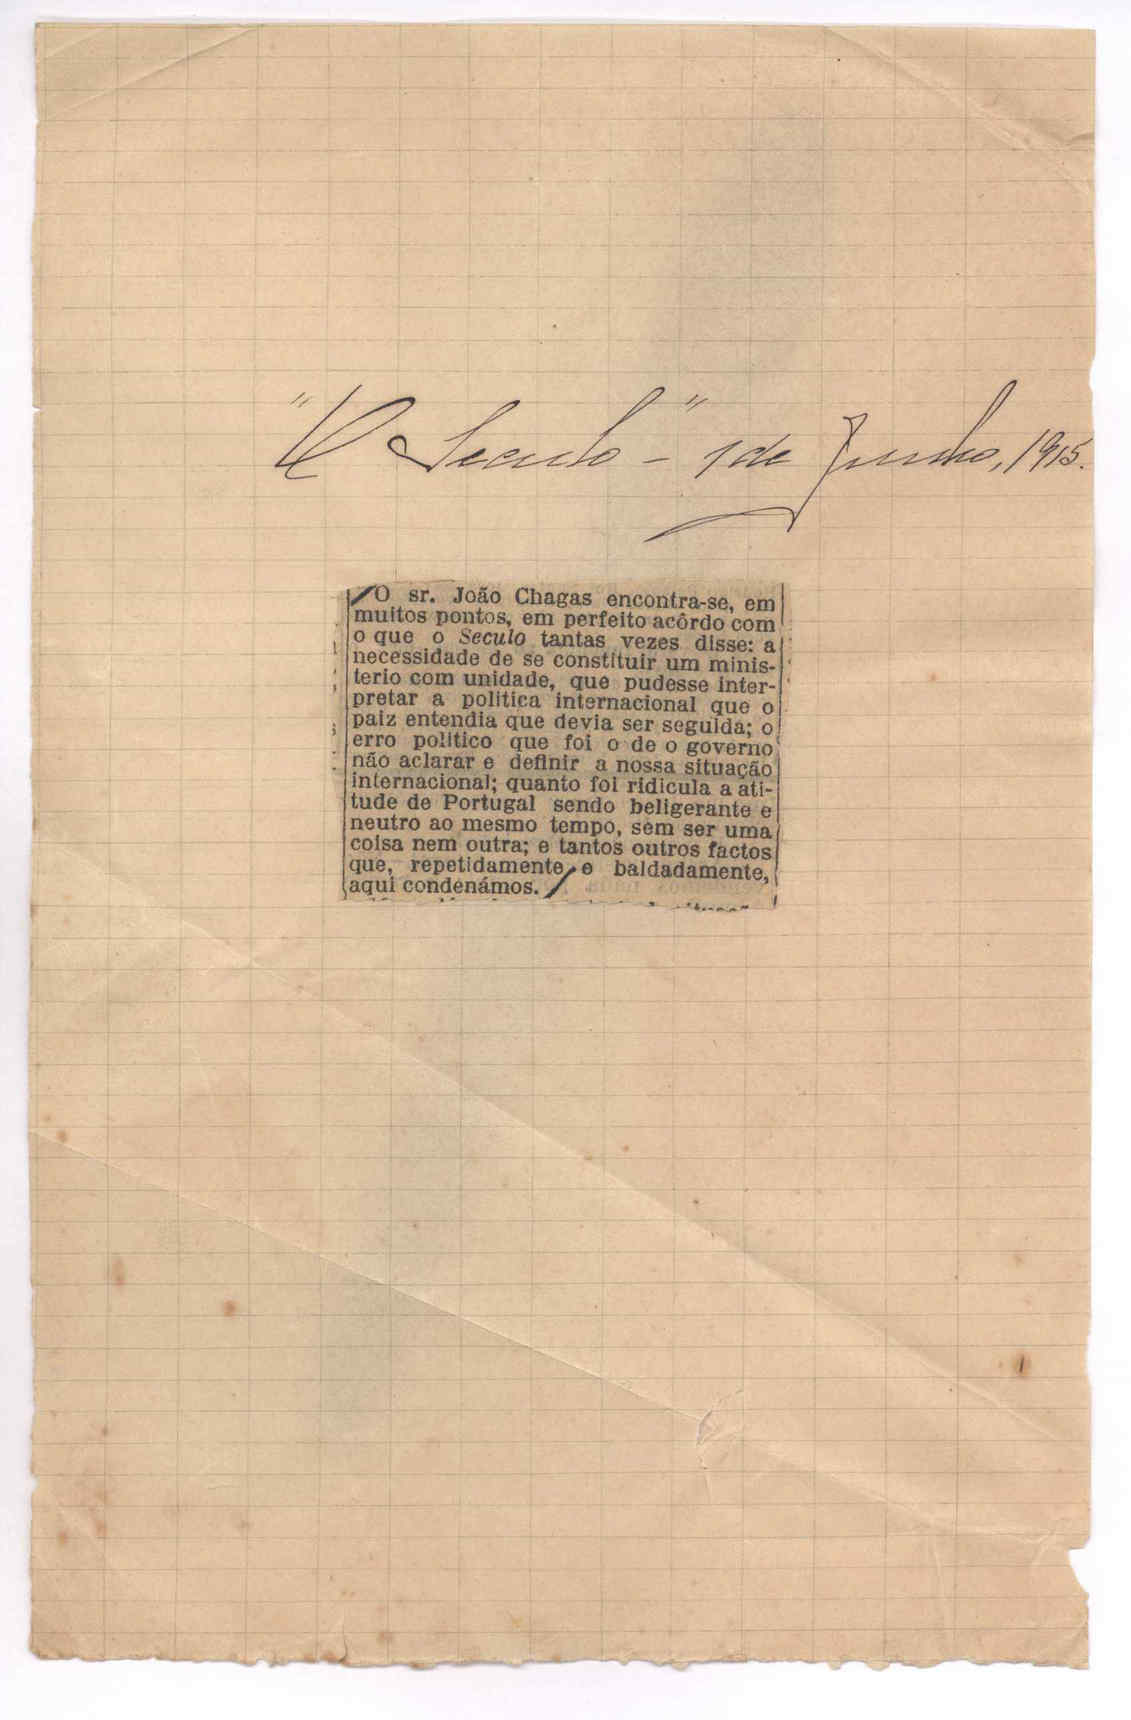 "O Seculo-" 1 de Junho, 1915.
O sr. João Chagas encontra-se, em
muitos pontos, em perfeito acôrdo com
o que o Seculo tantas vezes disse: a
necessidade de se constituir um minis-
terio com unidade, que pudesse inter-
pretar a politica internacional que o
paiz entendia que devia ser seguida; o
erro politico que foi o de o governo
não aclarar e definir a nossa situação
internacional; quanto foi ridicula a ati-
tude de Portugal sendo beligerante e
neutro ao mesmo tempo, sem ser uma
coisa nem outra; e tantos outros factos
que, repetidamente e baldadamente,
aqui condenámos.